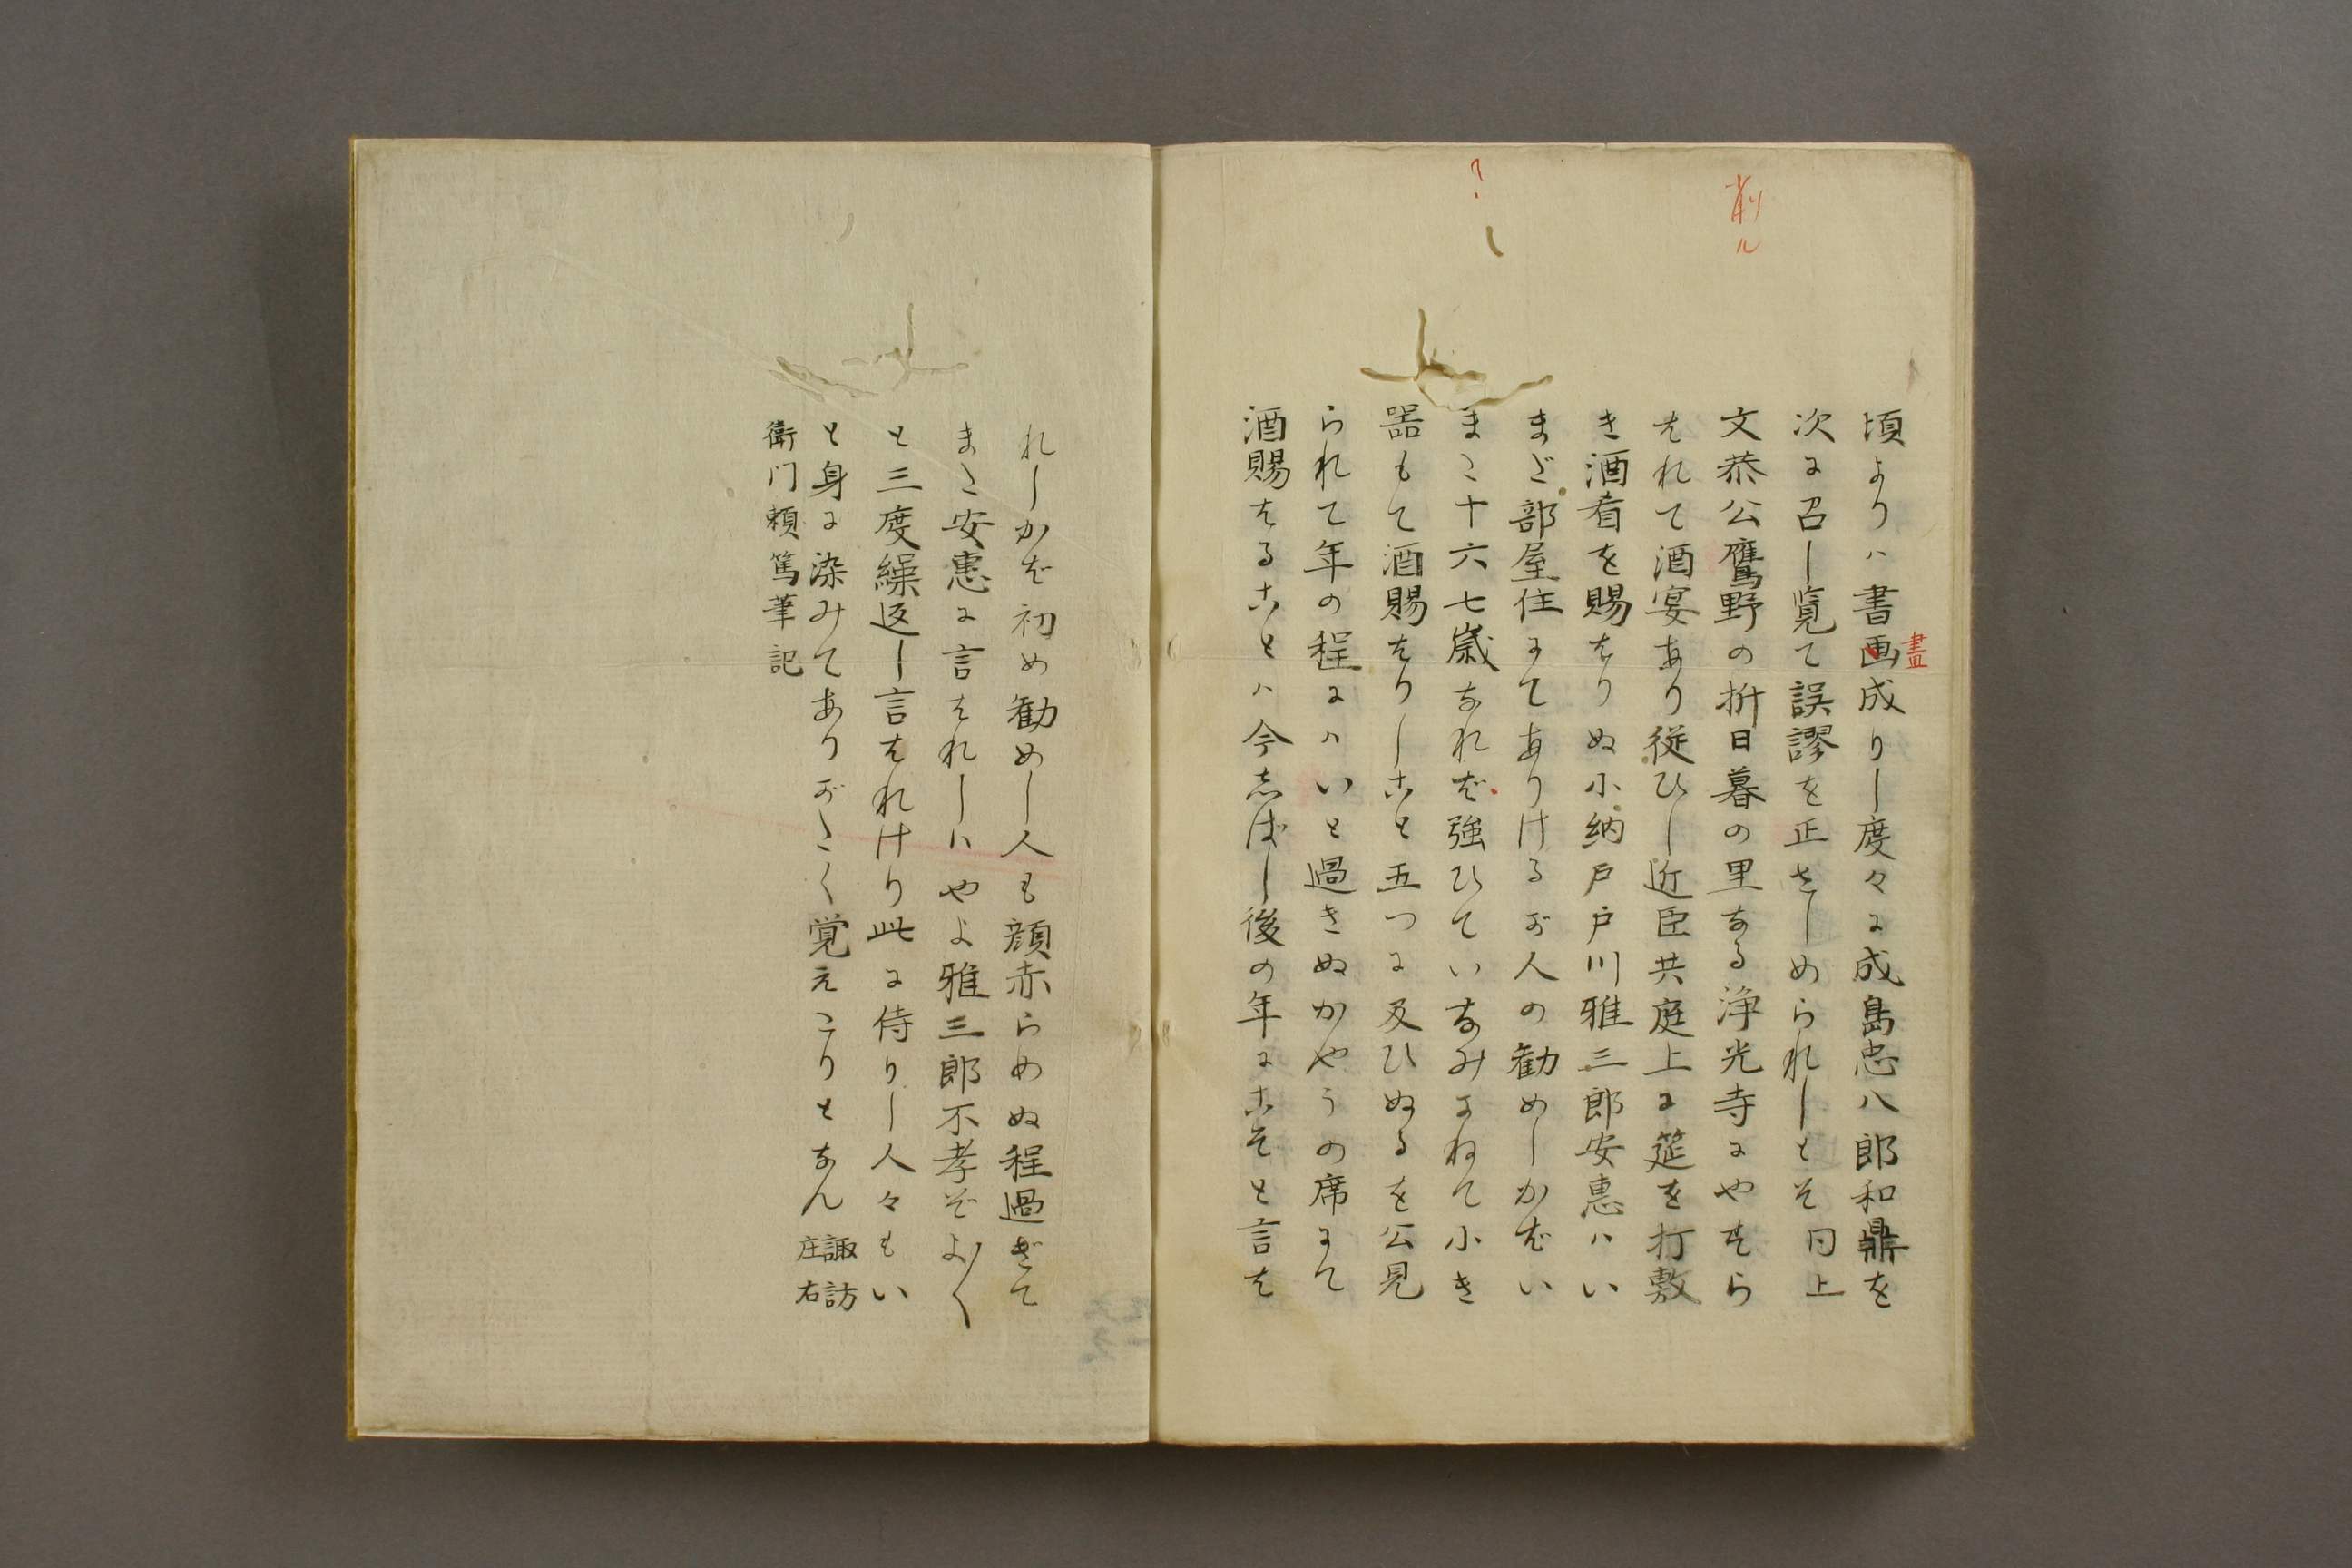 削ル
?
頃よりハ書画成りし度々に成島忠八郎和鼎を
畫
次に召し覧て誤謬を正さしめられしとそ同上
文恭公鷹野の折日暮の里なる浄光寺にやすら
はれて酒宴あり従ひし近臣共庭上に筵を打敷
き酒肴を賜はりぬ小納戸戸川雅三郎安恵ハい
まだ部屋住にてありけるが人の勧めしかばい
また十六七歳なれば強ひていなみかねて小き
器もて酒賜はりしこと五つに及ひぬるを公見
られて年の程にハいと過きぬかやうの席にて
酒賜はることハ今しばし後の年にこそと言は
れしかば初め勧めし人も顔赤らめぬ程過ぎて
また安恵に言はれしハやよ雅三郎不孝ぞよ〱
と三度繰返し言はれけり此に侍りし人々もい
と身に染みてありがたく覚えたりとなん 諏訪庄右
衛門頼篤筆記